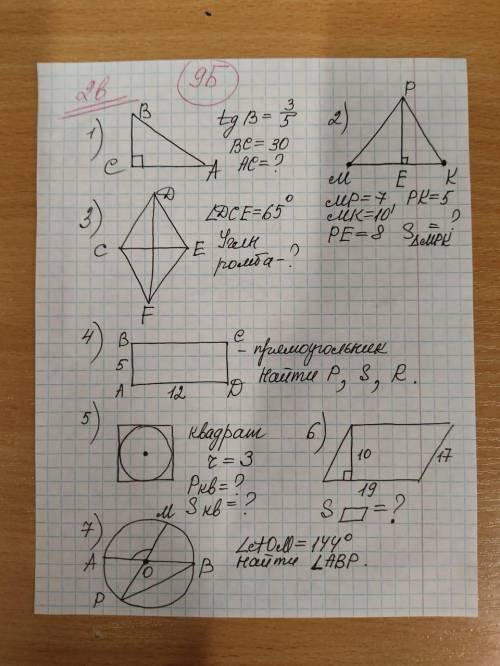 2в
9Б
1) B
C A
tg B = 3/5
BC = 30
AC = ?
2) P
M E K
MP = 7 PK = 5
MK = 10
PE = 8 S△MPK = ?
3) D
C E
F
∠DCE = 65°
Углы
ромба - ?
4) B C
5
A 12 D
- прямоугольник
Найти P, S, R.
5)
квадрат
r = 3
Pкв = ?
Sкв = ?
6)
10 17
19
S▱ = ?
7) M
A O B
P
∠AOM = 144°
Найти ∠ABP.